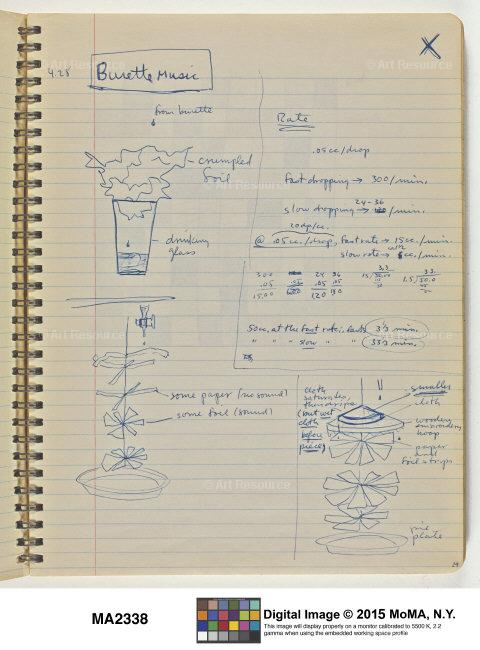 4.28
Burette Music
from burette
crumpled
foil
drinking
glass
some paper (no sound)
some foil (sound)
Rate
.05cc/drop
fast dropping → 300/min.
24-36
slow dropping → /min.
20dp/cc.
@ .05cc./drop, fast rate → 15cc./min.
slow rate → cc./min.
300
.05
15.00
24 36
.05 .05
120 180
3.3
15/50.00
3.3
1.5/50.0
50cc. at the fast rate, lasts 3.3 min.
" " " slow " " 33.3 min.
cloth
saturates,
then drips
(but wet
cloth
before
piece)
smaller
cloth
wooden
embroidery
hoop
paper
and
foil strips
pie
plate
© Art Resource
© Art Resource
© Art Resource
© Art Resource
MA2338
Digital Image © 2015 MoMA, N.Y.
This image will display properly on a monitor calibrated to 5500 K, 2.2
gamma when using the embedded working space profile